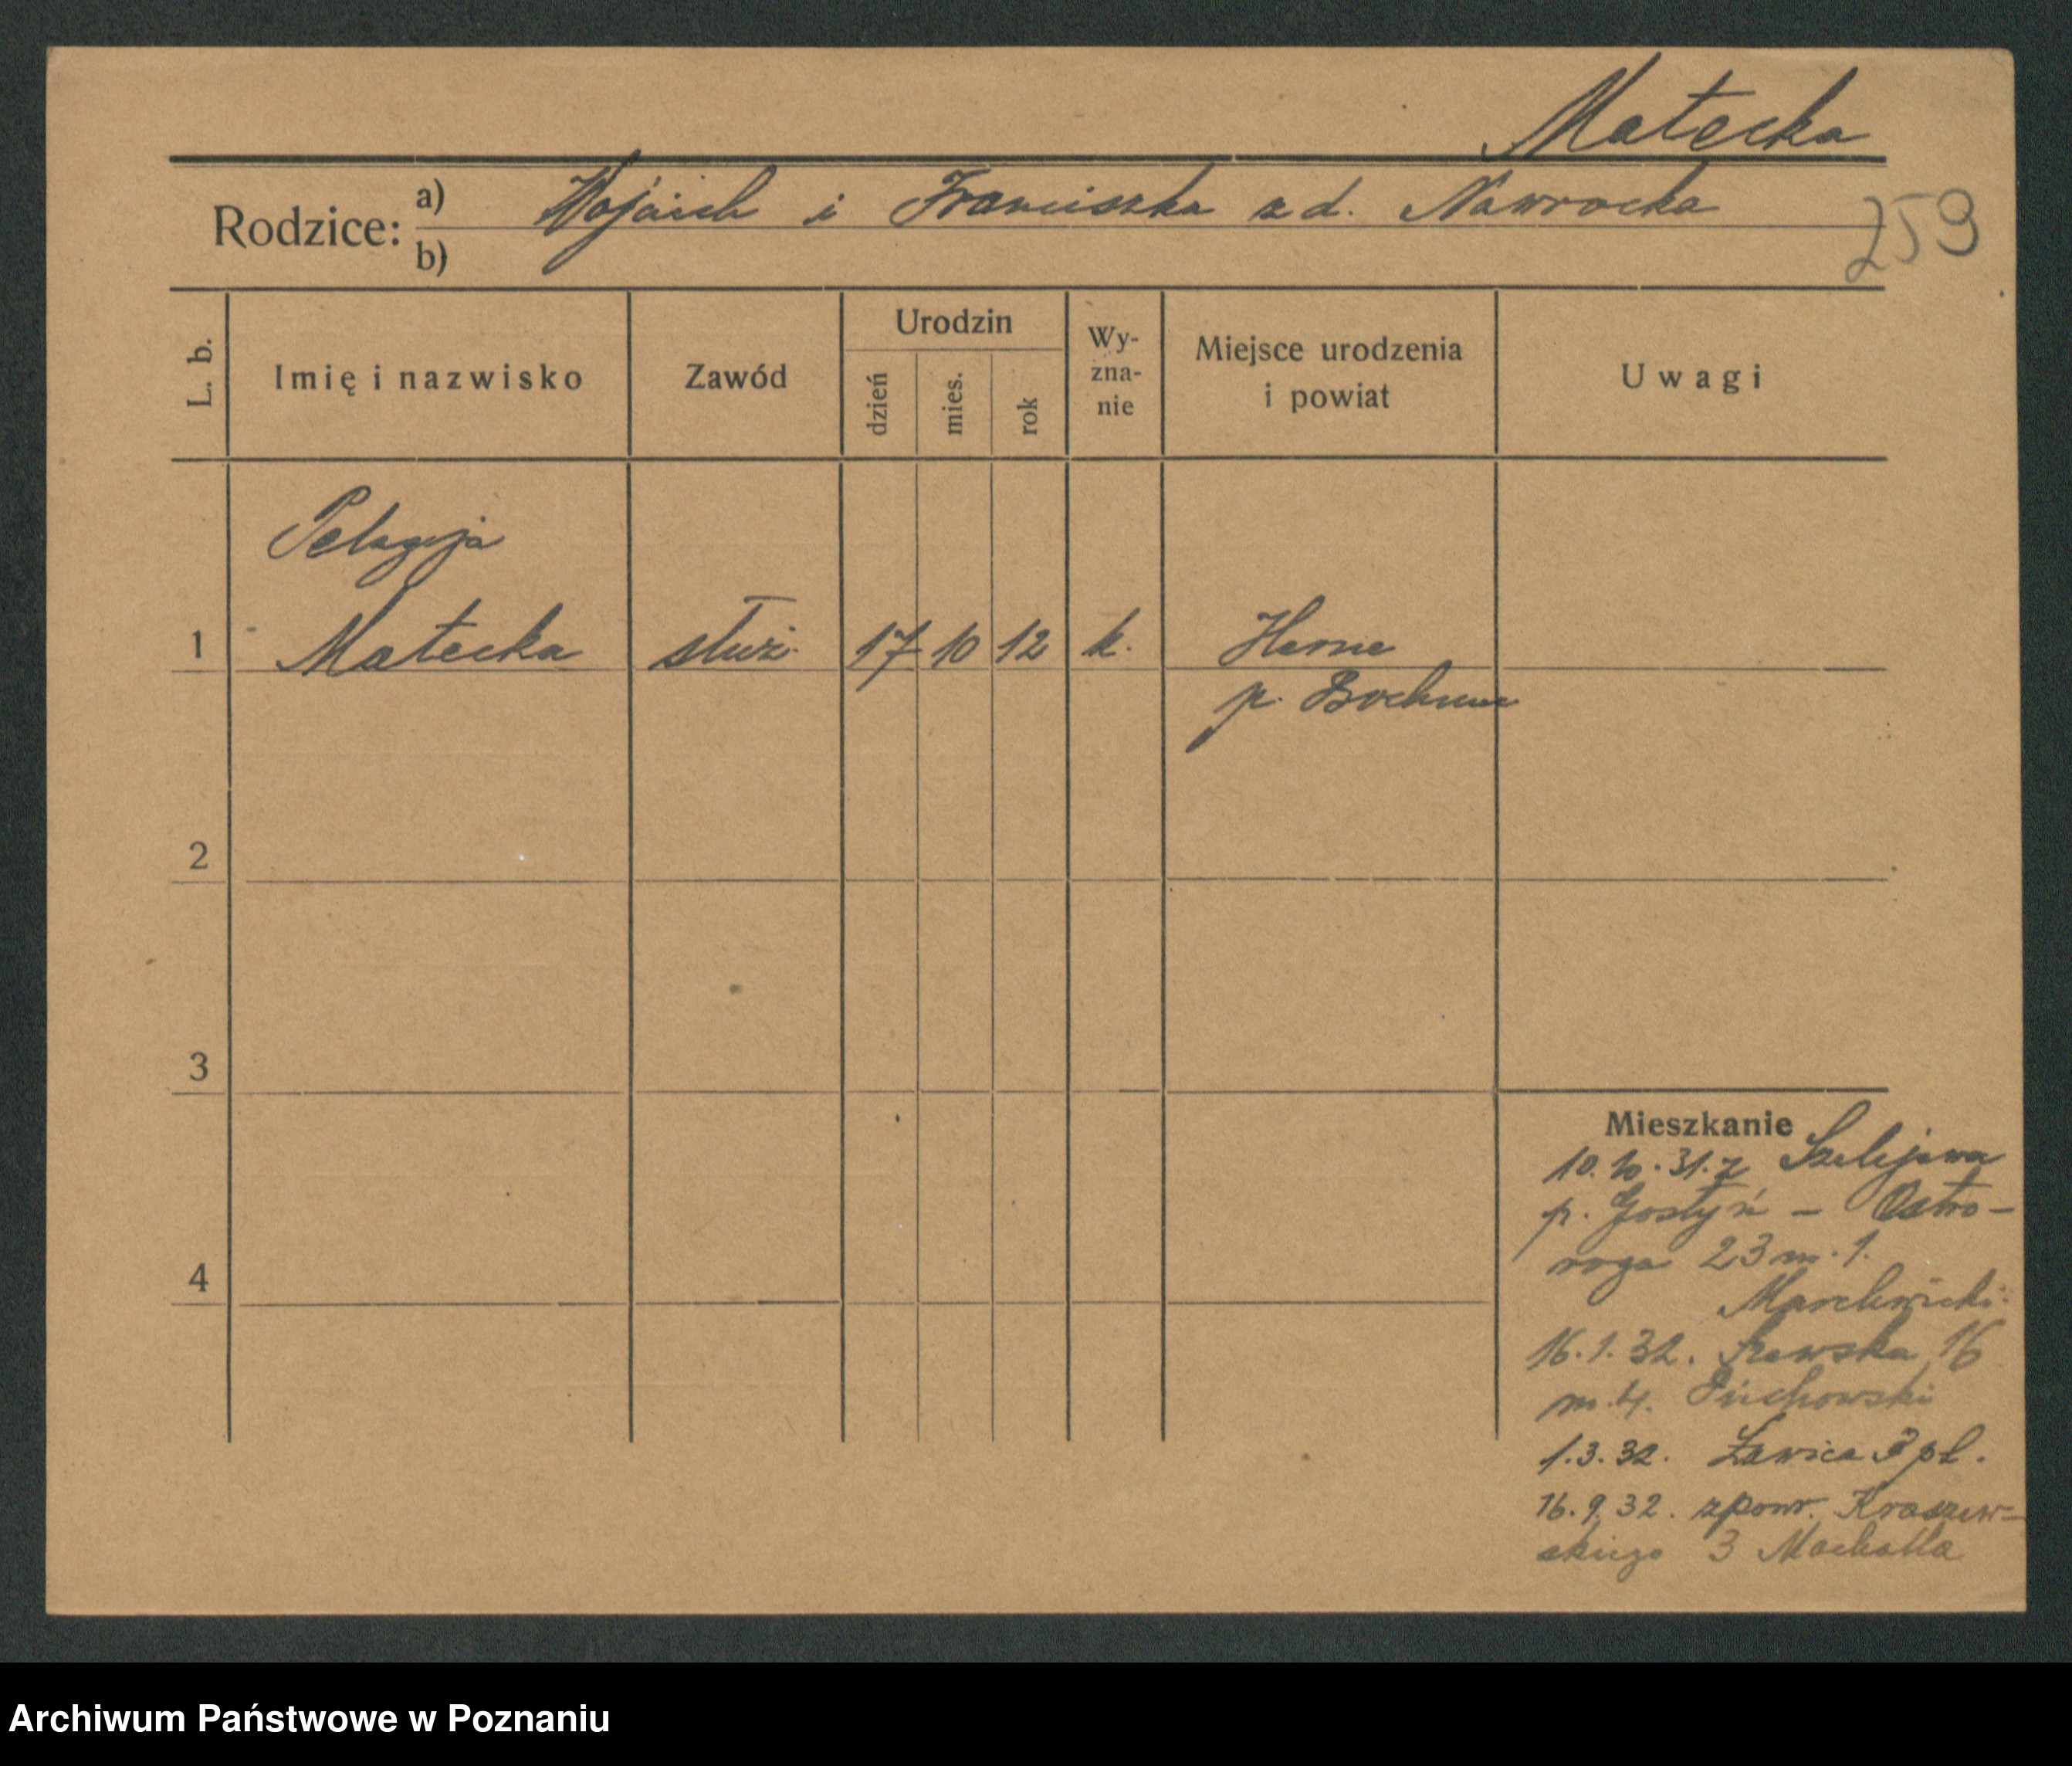 Małecka
Rodzice: a) Wojciech i Franciszka z d. Nawrocka
b)
259
L. b.
Imię i nazwisko
Zawód
Urodzin
dzień
mies.
rok
Wy-
zna-
nie
Miejsce urodzenia
i powiat
Uwagi
Pelagja
1 Małecka służ. 17 10 12 k. Herne
p. Bochum
2
3
4
Mieszkanie
10.10.31. z Szelejewa
p. Gostyń – Ostro-
roga 23 m. 1.
Marchwicki
16.1.32. Szewska 16
m. 4.
1.3.32. Ławica 3 pł.
16.9.32. zpowr. Kraszew-
skiego 3 Machalla
Archiwum Państwowe w Poznaniu